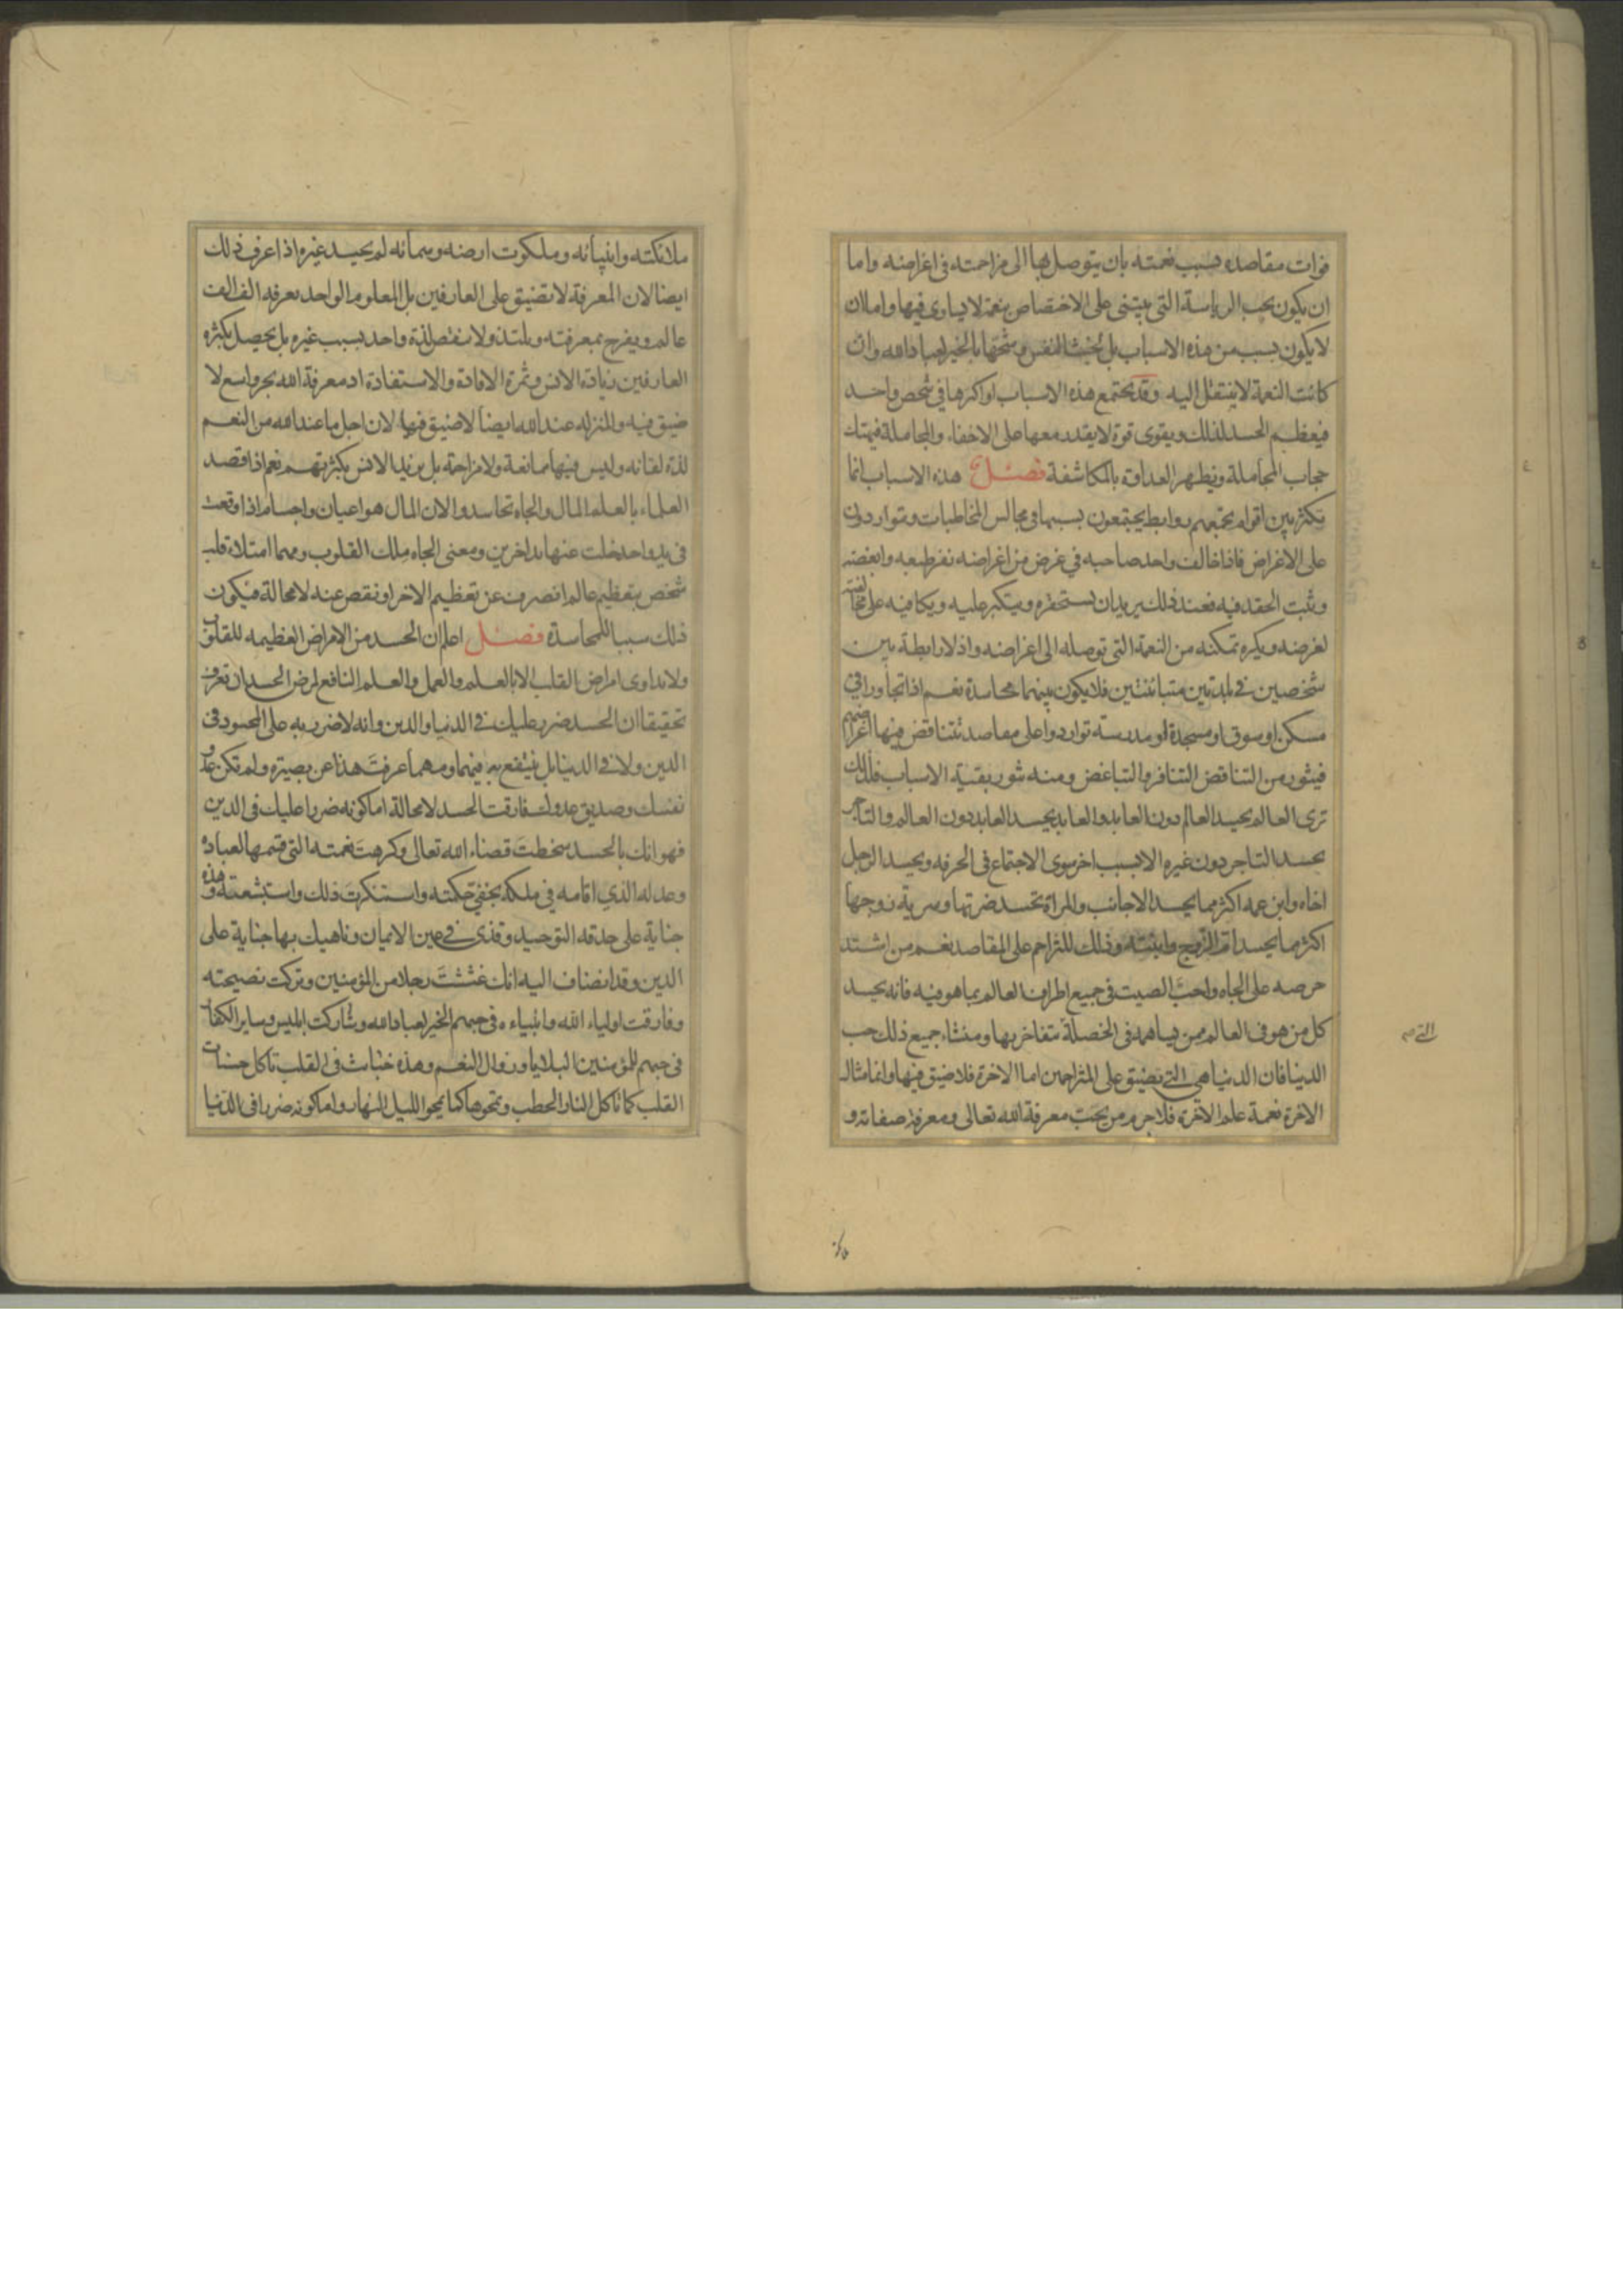 فوات مقاصده بسبب نعمته بان يتوصل بها الى مزاحمته فى اغراضه واما
ان يكون بحب الرياسة التى يبتنى على الاختصاص بنعمة لا يساوى فيها واما ان
لا يكون بسبب من هذه الاسباب بل لخبث النفس وشحها بالخير لعباد الله وان
كانت النعمة لا ينتقل اليه وقد يجتمع هذه الاسباب او اكثرها في شخص واحد
فيعظم الحسد لذلك ويقوى قوة لا يقدر معها على الاخفاء والمجاملة فيهتك
حجاب المجاملة ويظهر العداوة بالمكاشفة فصل هذه الاسباب انما
تكثر بين اقوام يجمعهم روابط يجتمعون بسببها فى مجالس المخاطبات ويتواردون
على الاغراض فاذا خالف واحد صاحبه في غرض من اغراضه نفر طبعه وابغضه
وثبت الحقد فيه فعند ذلك يريد ان يستحقره ويتكبر عليه ويكافيه على مخالفته
لغرضه ويكره تمكنه من النعمة التى توصله الى اغراضه واذ لا رابطة بين
شخصين فى بلدتين متبائنتين فلا يكون بينهما محاسدة نعم اذا تجاورا فى
مسكن او سوق او مسجد او مدرسة تواردوا على مقاصد تتناقض فيها اغراضهم
فيثور من التناقض التنافر والتباغض ومنه ثور بقية الاسباب فلذلك
ترى العالم يحسد العالم دون العابد والعابد يحسد العابد دون العالم والتاجر
يحسد التاجر دون غيره الا بسبب اخر سوى الاجتماع فى الحرفه ويحسد الرجل
اخاه وابن عمه اكثر مما يحسد الاجانب والمراة تحسد ضرتها وسرية زوجها
اكثر مما يحسد ام الزوج وابنته وذلك للتزاحم على المقاصد نعم من اشتد
حرصه على الجاه واحب الصيت فى جميع اطراف العالم بما هو فيه فانه يحسد
كل من هو فى العالم ممن يساهمه فى الخصلة يتفاخر بها ومنشاء جميع ذلك حب
الدنيا فان الدنيا هى التى تضيق على المتزاحمين اما الاخرة فلا ضيق فيها وانما مثال
الاخرة نعمة علم الاخرة فلا جرم من يحب معرفة الله تعالى ومعرفة صفاته و
التى
ملائكته وانبيائه وملكوت ارضه وسمائه لم يحسد غيره اذا عرف ذلك
ايضا لان المعرفة لا تضيق على العارفين بل المعلوم الواحد يعرفه الف الف
عالم ويفرح بمعرفته ويلتذ ولا ينقص لذة واحد بسبب غيره بل يحصل بكثرة
العارفين زيادة الانس وثمرة الافادة والاستفادة اذ معرفة الله بحر واسع لا
ضيق فيه والمنزله عند الله ايضا لا ضيق فيها لان اجل ما عند الله من النعم
لذة لقائه وليس فيها ممانعة ولا مزاحمة بل يزيد الانس بكثرتهم نعم اذا قصد
العلماء بالعلم المال والجاه تحاسدوا لان المال هو اعيان واجسام اذا وقعت
فى يد واحد خلت عنها يد اخرين ومعنى الجاه ملك القلوب ومهما امتلاء قلب
شخص بتعظيم عالم انصرف عن تعظيم الاخر او نقص عنه لا محالة فيكون
ذلك سببا للمحاسدة فصل اعلم ان الحسد من الامراض العظيمه للقلوب
ولا يداوى امراض القلب الا بالعلم والعمل والعلم النافع لمرض الحسد ان تعرف
تحقيقا ان الحسد ضرر عليك فى الدنيا والدين وانه لا ضرر به على المحسود فى
الدين ولا فى الدنيا بل ينتفع به فيهما ومهما عرفت هذا عن بصيرة ولم تكن عدو
نفسك وصديق عدوك فارقت الحسد لا محالة اما كونه ضررا عليك فى الدين
فهو انك بالحسد سخطت قضاء الله تعالى وكرهت نعمته التى قسمها لعباده
وعدله الذي اقامه في ملكه بخفي حكمته واستنكرت ذلك واستبشعته وهذه
جناية على حدقه التوحيد وقذى في عين الايمان وناهيك بها جناية على
الدين وقد انضاف اليه انك غششت رجلا من المؤمنين وتركت نصيحته
وفارقت اولياء الله وانبياءه فى حبهم الخير لعباد الله وشاركت ابليس وساير الكفار
فى حبهم للمؤمنين البلايا وزوال النعم وهذه خبائث فى القلب تاكل حسنات
القلب كما تاكل النار الحطب وتمحوها كما يمحو الليل النهار واما كونه ضررا فى الدنيا